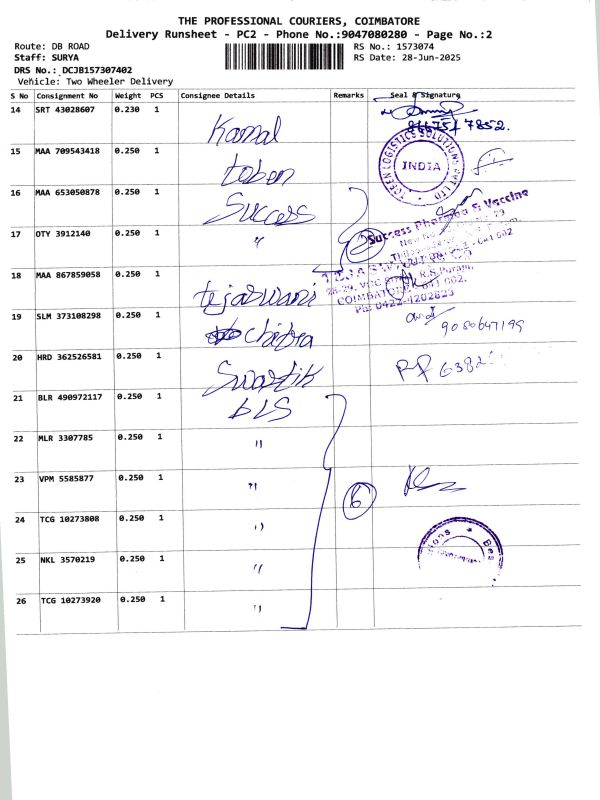 THE PROFESSIONAL COURIERS, COIMBATORE
Delivery Runsheet - PC2 - Phone No.:9047080280 - Page No.:2
Route: DB ROAD
RS No.: 1573074
Staff: SURYA
RS Date: 28-Jun-2025
DRS No.: DCJB157307402
Vehicle: Two Wheeler Delivery
S No Consignment No Weight PCS Consignee Details Remarks Seal & Signature
14 SRT 43028607 0.230 1 Kamal
15 MAA 709543418 0.250 1
INDIA
16 MAA 653050878 0.250 1 Success
Success Pharma & Vaccine
17 OTY 3912140 0.250 1 " 2
18 MAA 867859058 0.250 1 tejaswani
R.S.Puram,
COIMBATORE - 641 002.
PH: 0422-4202823
19 SLM 373108298 0.250 1 chitra
9080647199
20 HRD 362526581 0.250 1 Swastik 6382
21 BLR 490972117 0.250 1 bLS
22 MLR 3307785 0.250 1 "
23 VPM 5585877 0.250 1 "
24 TCG 10273808 0.250 1 " 6
25 NKL 3570219 0.250 1 "
26 TCG 10273920 0.250 1 "